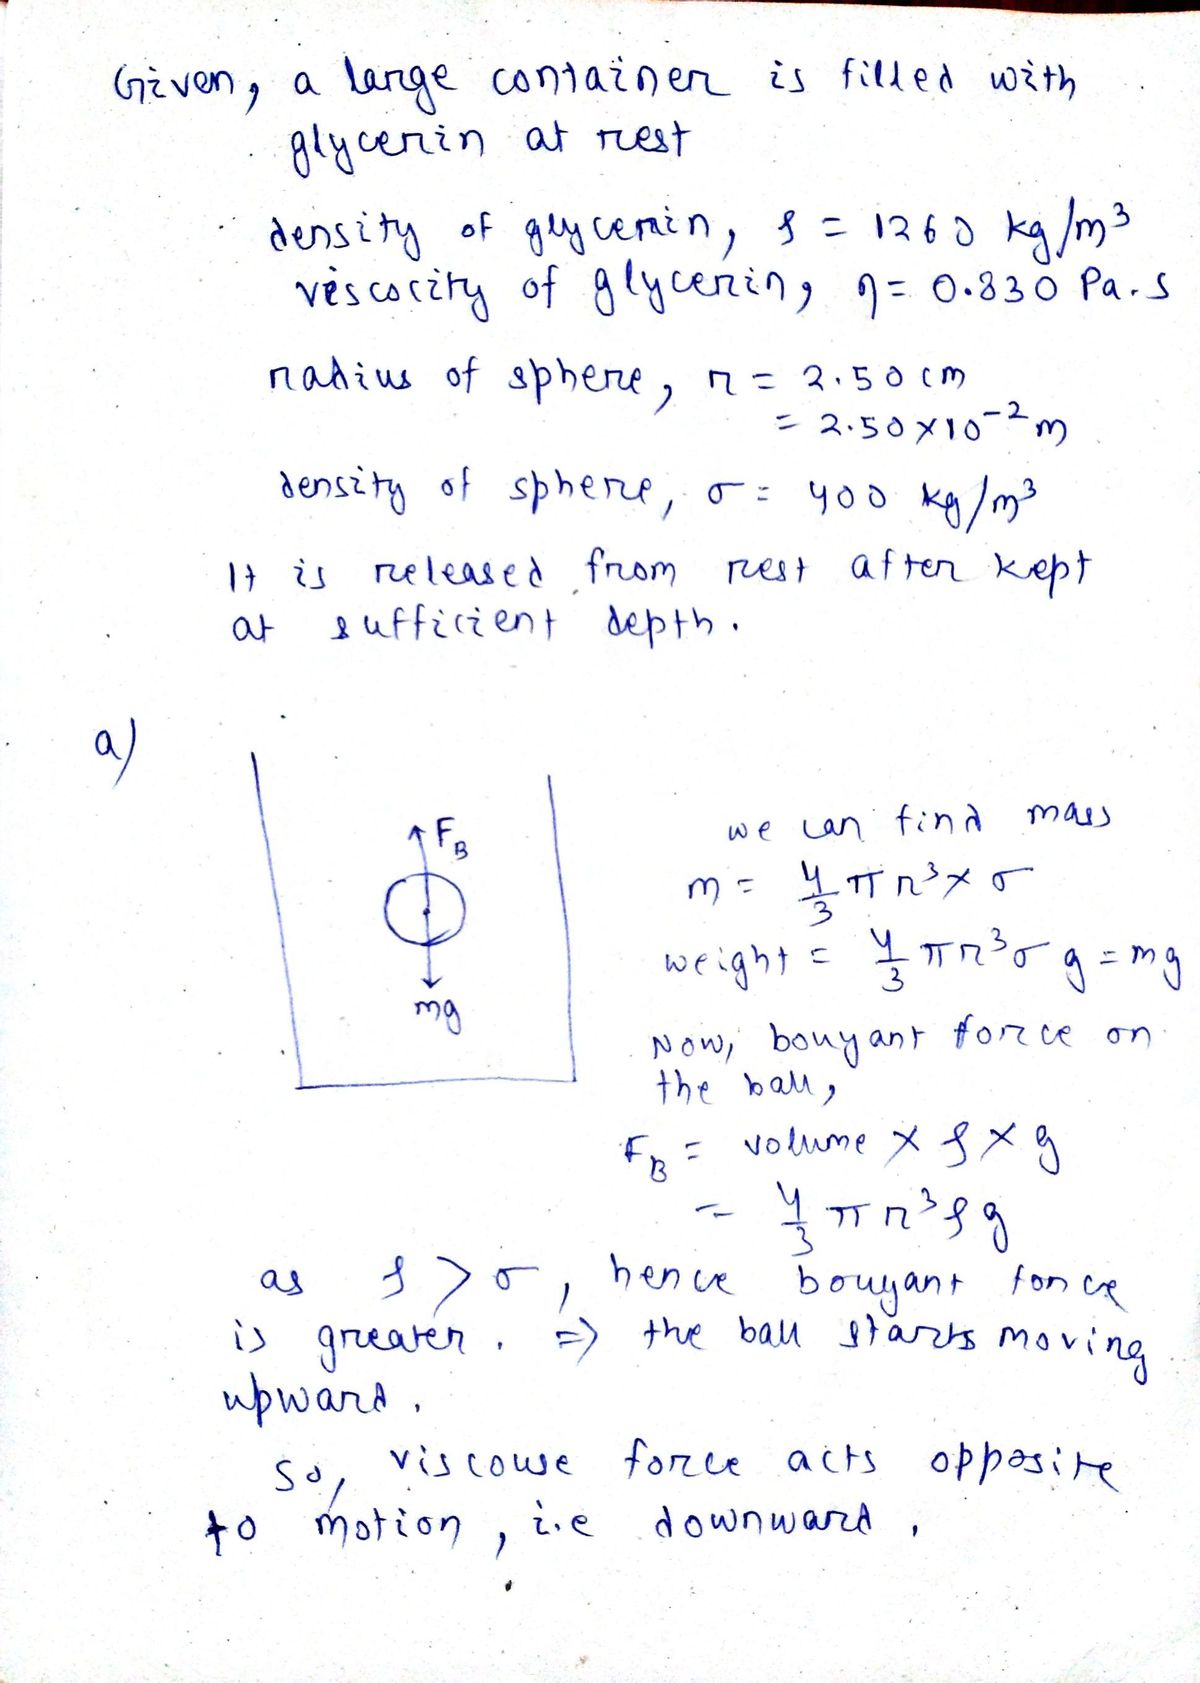 Given, a large container is filled with
glycerin at rest
density of glycerin, ρ = 1260 kg/m³
viscocity of glycerin, η = 0.830 Pa.s
radius of sphere, r = 2.50 cm
= 2.50×10⁻² m
density of sphere, σ = 400 kg/m³
It is released from rest after kept
at sufficient depth.
a)
F_B
mg
we can find mass
m = 4/3 π r³ × σ
weight = 4/3 π r³ σ g = mg
Now, bouyant force on
the ball,
F_B = volume × ρ × g
= 4/3 π r³ ρ g
as ρ > σ, hence bouyant force
is greater. ⇒ the ball starts moving
upward.
So, viscouse force acts opposite
to motion, i.e downward.